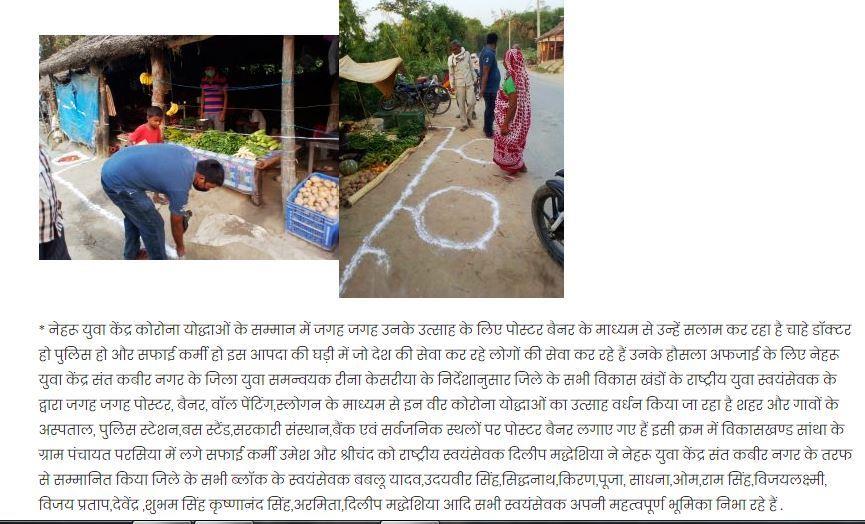 * नेहरू युवा केंद्र कोरोना योद्धाओं के सम्मान में जगह जगह उनके उत्साह के लिए पोस्टर बैनर के माध्यम से उन्हें सलाम कर रहा है चाहे डॉक्टर
हो पुलिस हो और सफाई कर्मी हो इस आपदा की घड़ी में जो देश की सेवा कर रहे लोगों की सेवा कर रहे हैं उनके हौसला अफजाई के लिए नेहरू
युवा केंद्र संत कबीर नगर के जिला युवा समन्वयक रीना केसरीया के निर्देशानुसार जिले के सभी विकास खंडों के राष्ट्रीय युवा स्वयंसेवक के
द्वारा जगह जगह पोस्टर, बैनर, वॉल पेंटिंग,स्लोगन के माध्यम से इन वीर कोरोना योद्धाओं का उत्साह वर्धन किया जा रहा है शहर और गावों के
अस्पताल, पुलिस स्टेशन,बस स्टैंड,सरकारी संस्थान,बैंक एवं सर्वजनिक स्थलों पर पोस्टर बैनर लगाए गए हैं इसी क्रम में विकासखण्ड सांथा के
ग्राम पंचायत परसिया में लगे सफाई कर्मी उमेश ओर श्रीचंद को राष्ट्रीय स्वयंसेवक दिलीप मद्धेशिया ने नेहरू युवा केंद्र संत कबीर नगर के तरफ
से सम्मानित किया जिले के सभी ब्लॉक के स्वयंसेवक बबलू यादव,उदयवीर सिंह,सिद्धनाथ,किरण,पूजा, साधना,ओम,राम सिंह,विजयलक्ष्मी,
विजय प्रताप,देवेंद्र ,शुभम सिंह कृष्णानंद सिंह,अरमिता,दिलीप मद्धेशिया आदि सभी स्वयंसेवक अपनी महत्वपूर्ण भूमिका निभा रहे हैं .